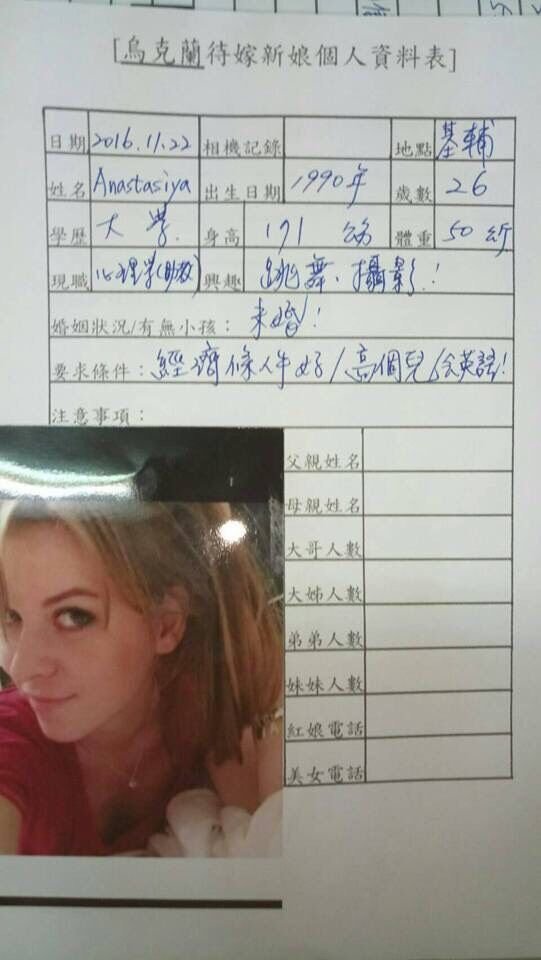 [烏克蘭待嫁新娘個人資料表]
日期 2016.11.22 相機記錄 地點 基輔
姓名 Anastasiya 出生日期 1990年 歲數 26
學歷 大學. 身高 171 公分 體重 50公斤
現職 心理學(助教) 興趣 跳舞、攝影.!
婚姻狀況/有無小孩： 未婚!
要求條件：經濟條件好/高個兒/會英語!
注意事項：
父親姓名
母親姓名
大哥人數
大姊人數
弟弟人數
妹妹人數
紅娘電話
美女電話